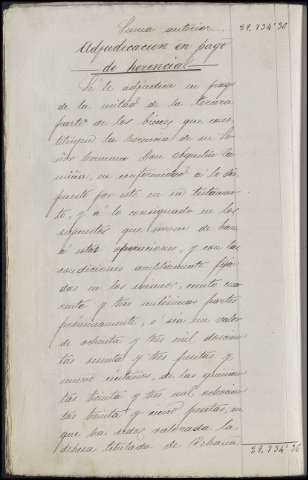 Suma anterior . . . 29,734"30
Adjudicacion en pago
de herencia
Se le adjudica en pago
de la mitad de la tercera
parte de los bienes que cons-
tituyen la herencia de su
hermano Don
en conformidad a lo dis-
puesto por este en su testamen-
to, y á lo consignado en los
supuestos que sirven de base
á estas operaciones, y con las
condiciones ampliamente fija-
das en los mismos, ciento cua-
renta y tres milésimas partes
proindiviso, ó sea un valor
de ochenta y tres mil
tas y tres pesetas y
nueve céntimos, de las quinien-
tas treinta y tres mil
tas treinta y pesetas, en
que ha sido valorada la
dehesa titulada de
29,734"30